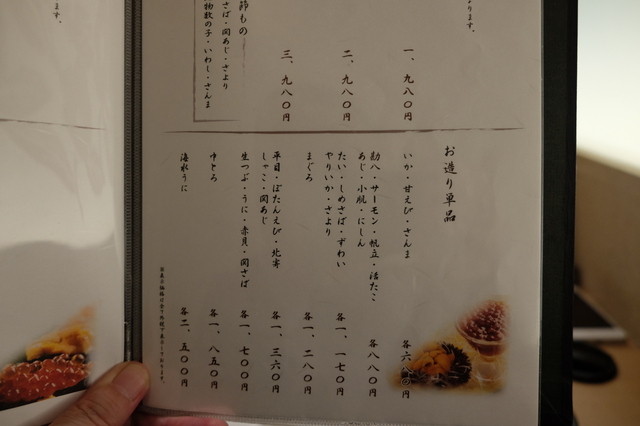 ります。
一、九八〇円
二、九八〇円
三、九八〇円
節もの
さば・関あじ・さより
物数の子・いわし・さんま
ます。
お造り単品
いか・甘えび・さんま
各六八〇円
勘八・サーモン・帆立・活たこ
あじ・小肌・にしん
各八八〇円
たい・しめさば・ずわい
やりいか・さより
各一、一七〇円
まぐろ
各一、二八〇円
平目・ぼたんえび・北寄
しゃこ・関あじ
各一、三六〇円
生つぶ・うに・赤貝・関さば
各一、七〇〇円
中とろ
各一、八五〇円
海水うに
各二、五〇〇円
※表示価格は全て税抜で表示しております。